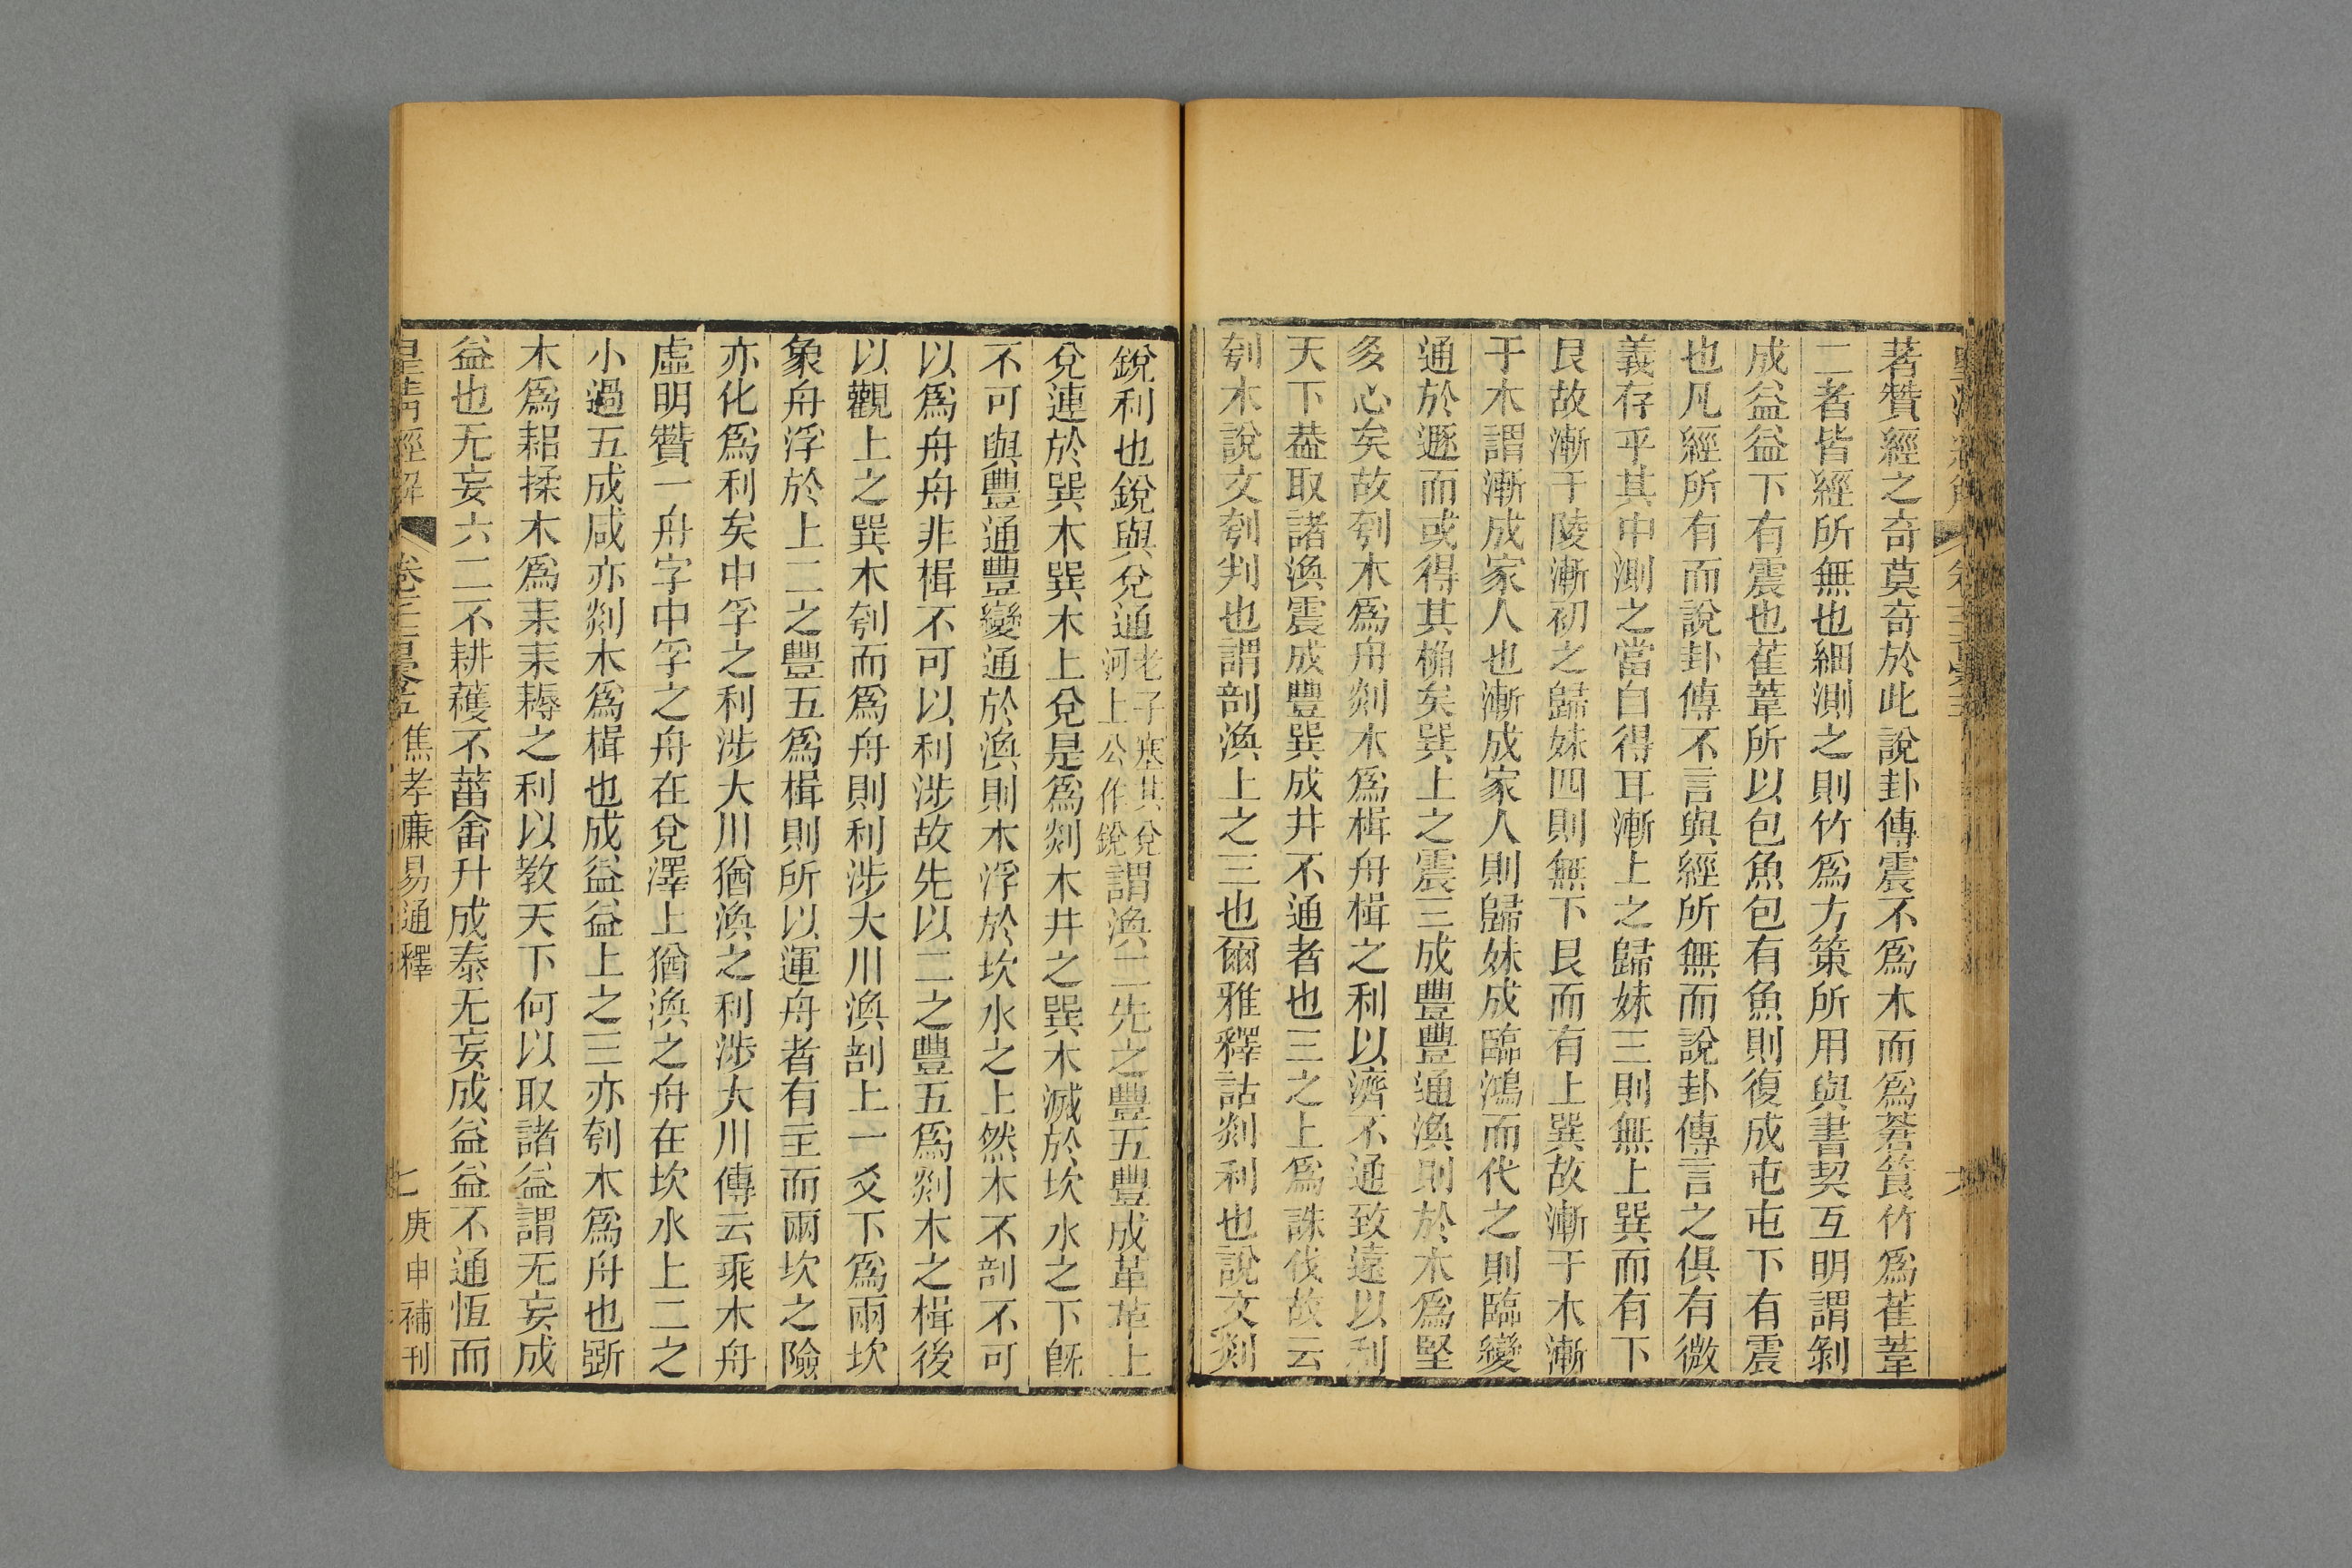 著贊經之奇莫奇於此說卦傳震不爲木而爲蒼筤竹爲萑葦
二者皆經所無也細測之則竹爲方策所用與書契互明謂剝
成益益下有震也萑葦所以包魚包有魚則復成屯屯下有震
也凡經所有而說卦傳不言與經所無而說卦傳言之俱有微
義存乎其中測之當自得耳漸上之歸妹三則無上巽而有下
艮故漸于陵漸初之歸妹四則無下艮而有上巽故漸于木漸
于木謂漸成家人也漸成家人則歸妹成臨鴻而代之則臨變
通於遯而或得其桷矣巽上之震三成豐豐通渙則於木爲堅
多心矣故刳木爲舟剡木爲楫舟楫之利以濟不通致遠以利
天下葢取諸渙震成豐巽成井不通者也三之上爲誅伐故云
刳木說文刳判也謂剖渙上之三也爾雅釋詁剡利也說文剡
銳利也銳與兌通老子塞其兌河上公作銳謂渙二先之豐五豐成革革上
兌連於巽木巽木上兌是爲剡木井之巽木滅於坎水之下旣
不可與豐通豐變通於渙則木浮於坎水之上然木不剖不可
以爲舟舟非楫不可以利涉故先以二之豐五爲剡木之楫後
以觀上之巽木刳而爲舟則利涉大川渙剖上一爻下爲兩坎
象舟浮於上二之豐五爲楫則所以運舟者有主而兩坎之險
亦化爲利矣中孚之利涉大川猶渙之利涉大川傳云乘木舟
虛明贊一舟字中孚之舟在兌澤上猶渙之舟在坎水上二之
小過五成咸亦剡木爲楫也成益益上之三亦刳木爲舟也斲
木爲耜揉木爲耒耒耨之利以教天下何以取諸益謂无妄成
益也无妄六二不耕穫不菑畬升成泰无妄成益益不通恆而
皇清經解 卷 焦孝廉易通釋 七 庚申補刊